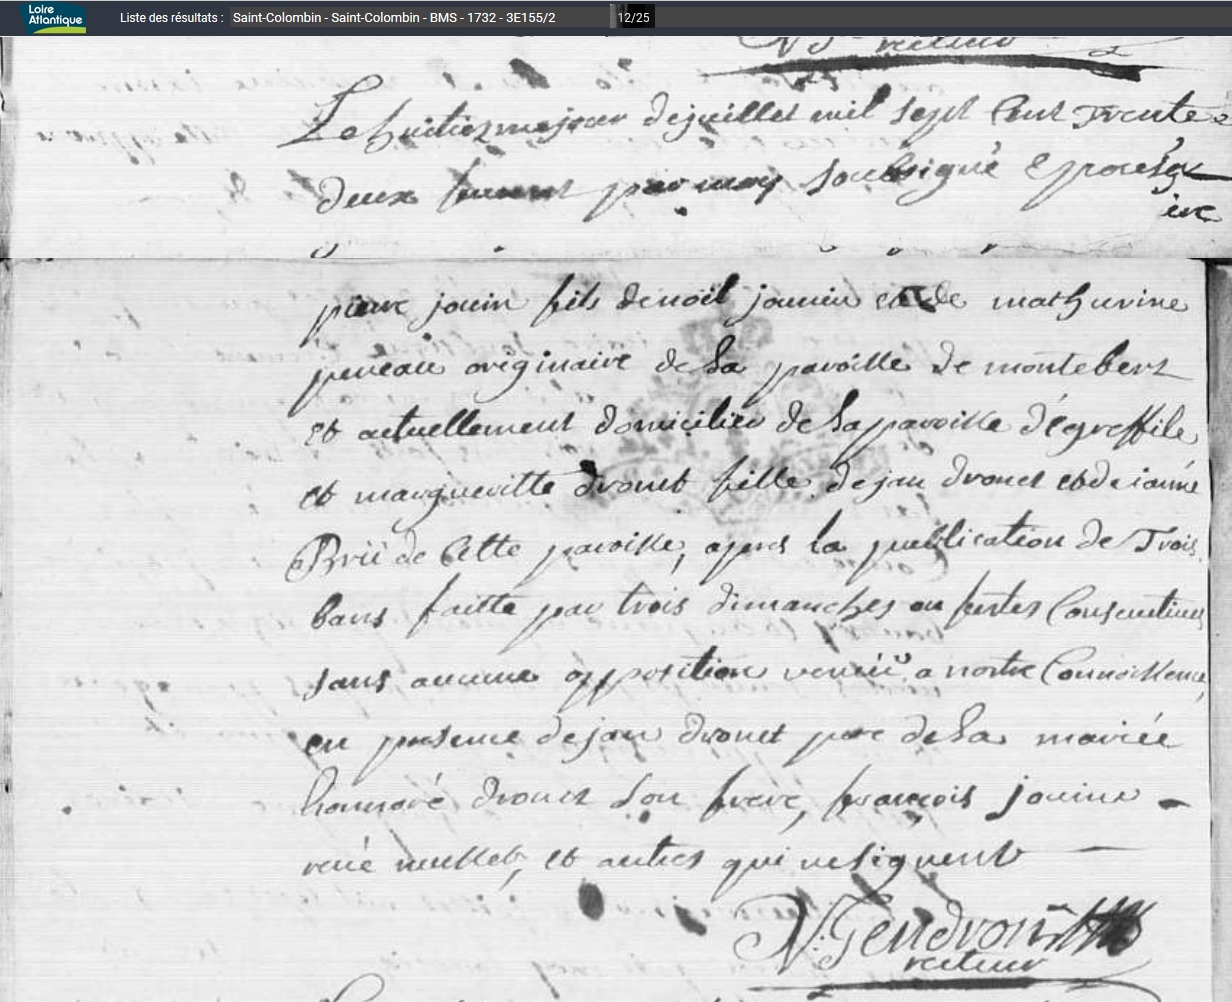 Loire
Atlantique
Liste des résultats : Saint-Colombin - Saint-Colombin - BMS - 1732 - 3E155/2
12/25
recteur
Le huitiezme jour de juillet mil sept Cent Trente &
deux furent par moy soubsigné Epousés
pierre jouin fils de noël jouin et de mathurine
peneau originaire de La paroisse de montebert
et actuellement domicilieu de La paroisse d'égreffile
et margueritte drouet fille de jan drouet et de janne
Brii de Cette paroisse, apres la publication de Trois
bans faitte par trois dimanches ou festes Consecutives
sans aucune opposition venuü a nostre Connoissence,
en presence de jan drouet pere de La mariée
honnoré drouet son frere, francois jouine
rené et autres qui ne signent
N: Gendron
recteur